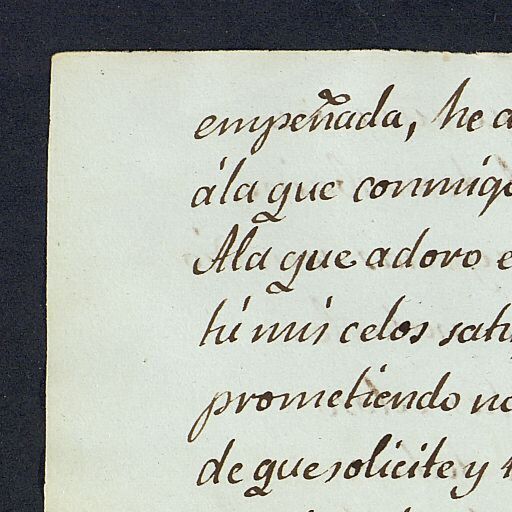 empeñada, he a
á la que conmigo
Ala que adoro e
tú mis celos sati
prometiendo no
de que solicite y